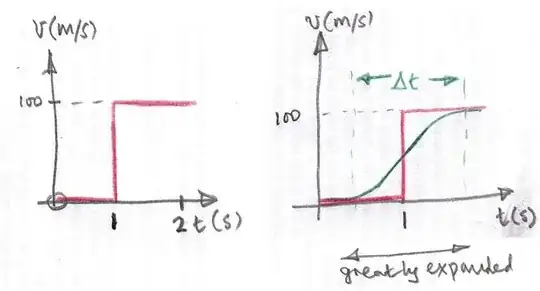 v(m/s)
100
1
2
t(s)
v(m/s)
Δt
100
1
t(s)
greatly expanded